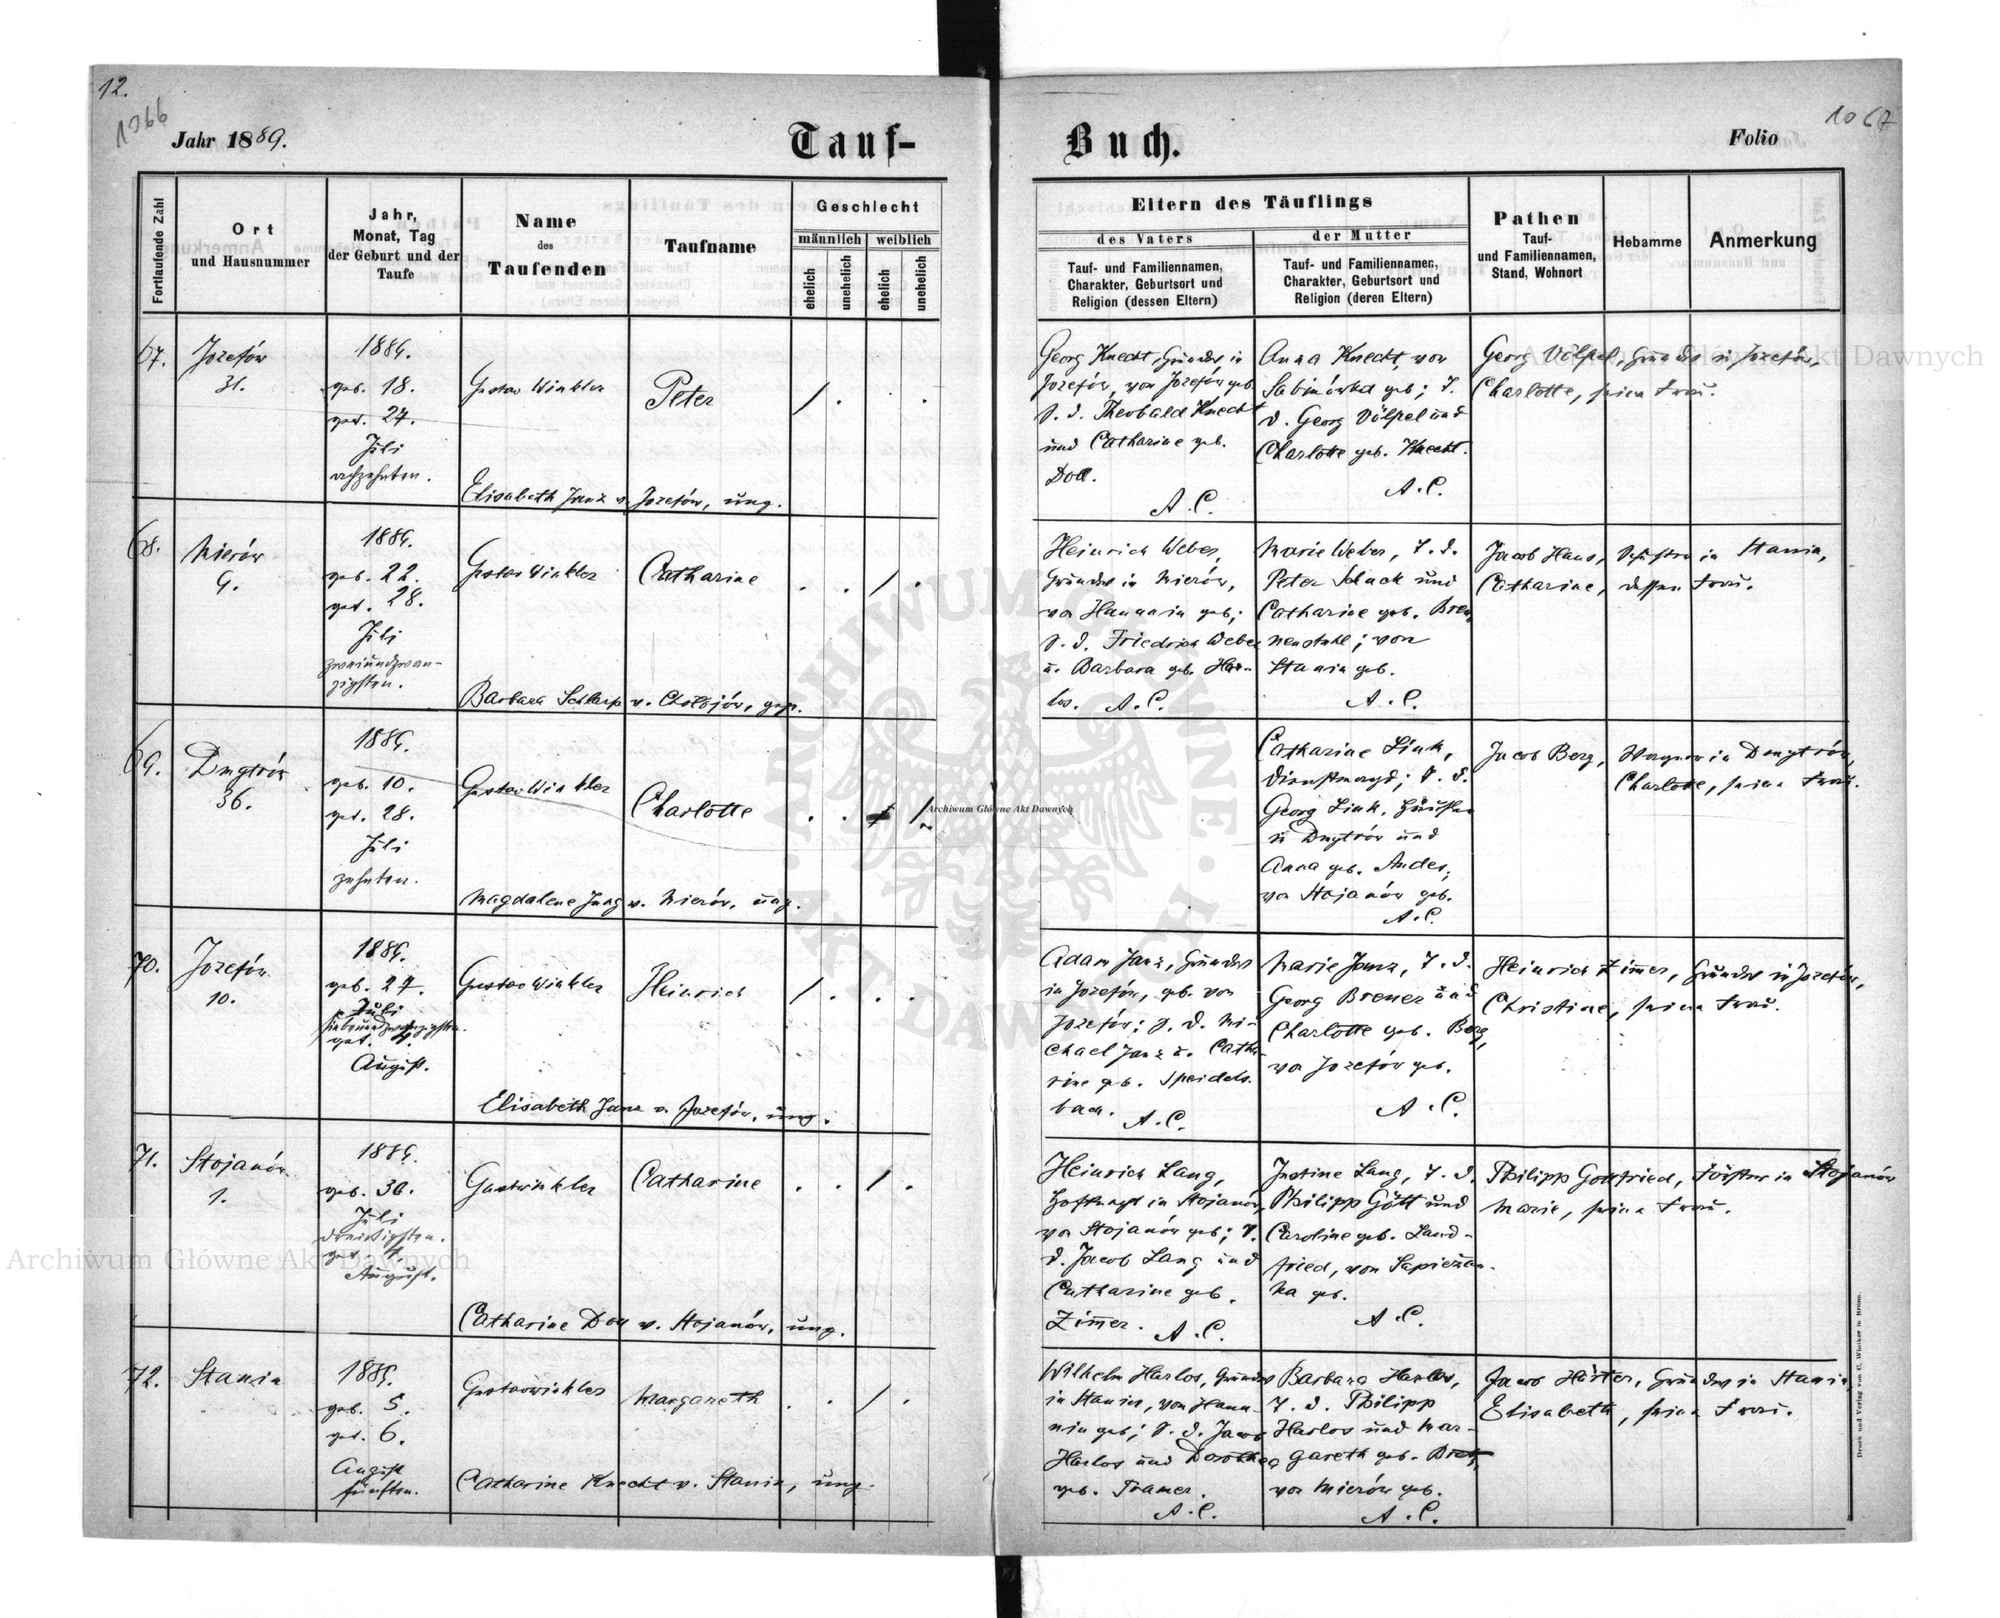 12.
1066
1067
Jahr 1889.
Tauf-
Buch.
Folio
Fortlaufende Zahl
Ort
und Hausnummer
Jahr,
Monat, Tag
der Geburt und der
Taufe
Name
des
Taufenden
Taufname
Geschlecht
männlich
weiblich
ehelich
unehelich
ehelich
unehelich
Eltern des Täuflings
des Vaters
der Mutter
Tauf- und Familiennamen,
Charakter, Geburtsort und
Religion (dessen Eltern)
Tauf- und Familiennamen,
Charakter, Geburtsort und
Religion (deren Eltern)
Pathen
Tauf-
und Familiennamen,
Stand, Wohnort
Hebamme
Anmerkung
67.
Jozefów
31.
1889.
geb. 18.
get. 27.
Juli
achzehnten.
Gustav Winkler
Peter
Elisabeth Janz v. Jozefów, ung.
Georg Knecht, Grundw. in
Jozefów, von Jozefów geb.
S. d. Theobald Knecht
und Catharine geb.
Doll.
A. C.
Anna Knecht, von
Sabinówka geb; T.
d. Georg Völpel und
Charlotte geb. Knecht.
A. C.
Georg Völpel, Grundw. in Jozefów,
Charlotte, seine Frau.
68.
Mierów
9.
1889.
geb. 22.
get. 28.
Juli
zweiundzwan-
zigsten.
Gustav Winkler
Catharine
Barbara Schlarp v. Cholojów, gep.
Heinrich Weber,
Grundw. in Mierów,
von Hannnin geb;
S. d. Friedrich Weber
u. Barbara geb. Har-
los. A. C.
Marie Weber, T. d.
Peter Schick und
Catharine geb. Bren
nenstuhl; von
Stanin geb.
A. C.
Jacob Haus, in Stanin,
Catharine, dessen Frau.
69.
Dmytrów
36.
1889.
geb. 10.
get. 28.
Juli
zehnten.
Gustav Winkler
Charlotte
Magdalene Jung v. Mierów, ung.
Catharine Link,
Dienstmagd; T. d.
Georg Link, Häusler
in Dmytrów und
Anna geb. Andes,
von Stojanów geb.
A. C.
Jacob Berg, Wagner in Dmytrów,
Charlotte, seine Frau.
70.
Jozefów
10.
1889.
geb. 27.
Juli
siebenundzwanzigsten.
get. 4.
August.
Gustav Winkler
Heinrich
Elisabeth Janz v. Jozefów, ung.
Adam Janz, Grundw.
in Jozefów, geb. von
Jozefów; S. d. Mi-
chael Janz u. Catha-
rine geb. Speidels-
bach. A. C.
Marie Janz, T. d.
Georg Brener und
Charlotte geb. Berg,
von Jozefów geb.
A. C.
Heinrich Zimmer, Grundw. in Jozefów,
Christine, seine Frau.
71.
Stojanów
1.
1889.
geb. 30.
Juli
dreissigsten.
get. 4.
August.
Gust. Winkler
Catharine
Catharine Doll v. Stojanów, ung.
Heinrich Lang,
Hofknecht in Stojanów,
von Stojanów geb; S.
d. Jacob Lang und
Catharine geb.
Zimmer. A. C.
Justine Lang, T. d.
Philipp Gött und
Caroline geb. Land-
fried, von Sapiezan-
ka geb.
A. C.
Philipp Gottfried, Förster in Stojanów
Marie, seine Frau.
72.
Stanin
1889.
geb. 5.
get. 6.
August
fünften.
Gustav Winkler
Margareth
Catharine Knecht v. Stanin, ung.
Wilhelm Harlos, Grundw.
in Stanin, von Hann-
nin geb; S. d. Jacob
Harlos und Dorothea
geb. Framer.
A. C.
Barbara Harlos,
T. d. Philipp
Harlos und Mar-
gareth geb. Bretz,
von Mierów geb.
A. C.
Jacob Höster, Grundw. in Stanin,
Elisabeth, seine Frau.
Druck und Verlag von C. Winiker in Brünn.
Archiwum Główne Akt Dawnych
Archiwum Główne Akt Dawnych
Archiwum Główne Akt Dawnych
ARCHIWUM GŁÓWNE AKT DAWNYCH